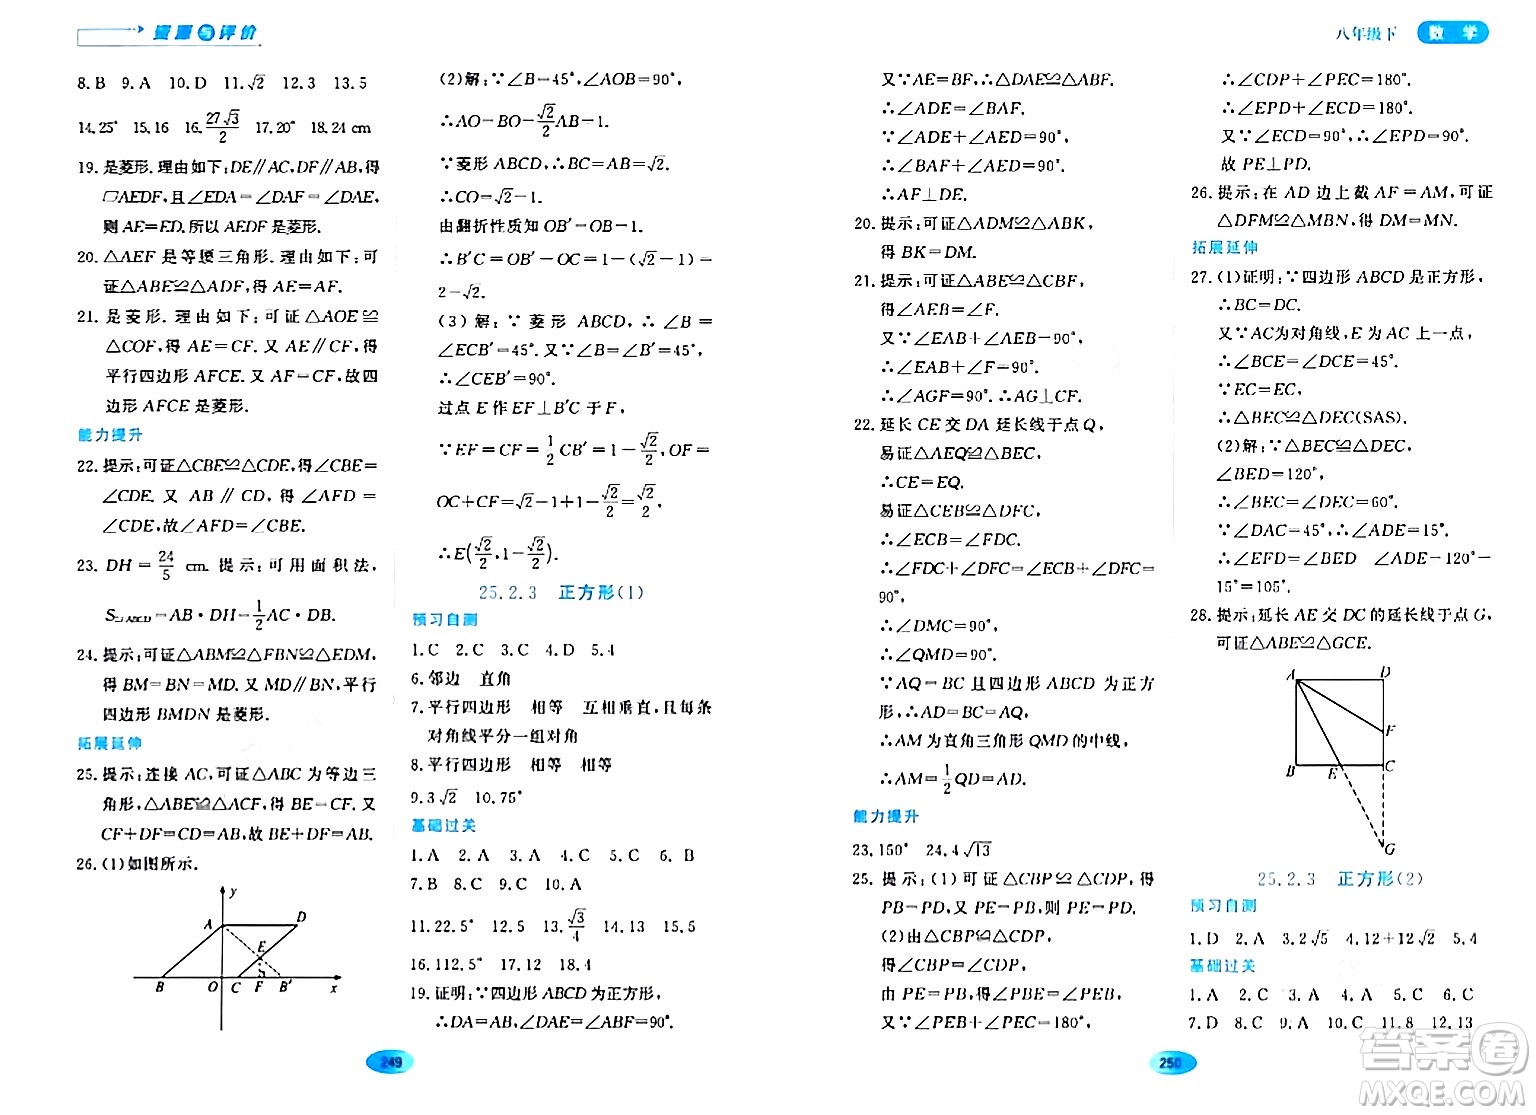 资源与评价
8.B 9.A 10.D 11.√2 12.3 13.5
14.25° 15.16 16.27√3/2 17.20° 18.24 cm
19.是菱形.理由如下:DE∥AC,DF∥AB,得
▱AEDF,且∠EDA=∠DAF=∠DAE,
则 AE=ED.所以 AEDF 是菱形.
20.△AEF 是等腰三角形.理由如下:可
证△ABE≌△ADF,得 AE=AF.
21.是菱形.理由如下:可证△AOE≌
△COF,得 AE=CF.又 AE∥CF,得
平行四边形 AFCE.又 AF=CF,故四
边形 AFCE 是菱形.
能力提升
22.提示:可证△CBE≌△CDE,得∠CBE=
∠CDE.又 AB∥CD,得∠AFD=
∠CDE,故∠AFD=∠CBE.
23.DH=24/5 cm.提示:可用面积法,
S▱ABCD=AB·DH=1/2AC·DB.
24.提示:可证△ABM≌△FBN≌△EDM,
得 BM=BN=MD.又 MD∥BN,平行
四边形 BMDN 是菱形.
拓展延伸
25.提示:连接 AC,可证△ABC 为等边三
角形,△ABE≌△ACF,得 BE=CF.又
CF+DF=CD=AB,故 BE+DF=AB.
26.(1)如图所示.
y
A D
E
B O C F B′ x
(2)解:∵∠B=45°,∠AOB=90°,
∴AO=BO=√2/2AB=1.
∵菱形 ABCD,∴BC=AB=√2.
∴CO=√2-1.
由翻折性质知 OB′=OB=1.
∴B′C=OB′-OC=1-(√2-1)=
2-√2.
(3)解:∵菱形 ABCD,∴∠B=
∠ECB′=45°.又∵∠B=∠B′=45°,
∴∠CEB′=90°.
过点 E 作 EF⊥B′C 于 F,
∵EF=CF=1/2CB′=1-√2/2,
OC+CF=√2-1+1-√2/2=√2/2,
∴E(√2/2,1-√2/2).
25.2.3 正方形(1)
预习自测
1.C 2.C 3.C 4.D 5.4
6.邻边 直角
7.平行四边形 相等 互相垂直,且每条
对角线平分一组对角
8.平行四边形 相等 相等
9.3√2 10.75°
基础过关
1.A 2.A 3.A 4.C 5.C 6.A
7.B 8.C 9.C 10.A
11.22.5° 12.5 13.√3/4 14.6 15.5
16.112.5° 17.12 18.4
19.证明:∵四边形 ABCD 为正方形,
∴DA=AB,∠DAE=∠ABF=90°.
249
八年级下 数学
又∵AE=BF,∴△DAE≌△ABF.
∴∠ADE=∠BAF.
∵∠ADE+∠AED=90°,
∴∠BAF+∠AED=90°.
∴AF⊥DE.
20.提示:可证△ADM≌△ABK,
得 BK=DM.
21.提示:可证△ABE≌△CBF,
得∠AEB=∠CFB.
又∵∠EAB+∠AEB=90°,
∴∠EAB+∠CFB=90°.
∴∠AGF=90°.∴AG⊥CF.
22.延长 CE 交 DA 延长线于点 Q,
易证△AEQ≌△BEC,
∴CE=EQ.
易证△CEB≌△DFC,
∴∠ECB=∠FDC.
∴∠FDC+∠DFC=∠ECB+∠DFC=
90°.
∴∠DMC=90°.
∴∠QMD=90°.
∵AQ=BC 且四边形 ABCD 为正方
形,∴AD=BC=AQ,
∴AM 为直角三角形 QMD 的中线,
∴AM=1/2QD=AD.
能力提升
23.150° 24.4√13
25.提示:(1)可证△CBP≌△CDP,得
PB=PD,又 PE=PB,则 PE=PD.
(2)由△CBP≌△CDP,
得∠CBP=∠CDP.
由 PE=PB,得∠PBE=∠PEB,
又∵∠PEB+∠PEC=180°,
∴∠CDP+∠PEC=180°.
∴∠EPD+∠ECD=180°.
又∵∠ECD=90°,∴∠EPD=90°.
故 PE⊥PD.
26.提示:在 AD 边上截 AF=AM,可证
△DFM≌△MBN,得 DM=MN.
拓展延伸
27.(1)证明:∵四边形 ABCD 是正方形,
∴BC=DC.
又∵AC为对角线,E 为 AC 上一点,
∴∠BCE=∠DCE=45°.
∵EC=EC,
∴△BEC≌△DEC(SAS).
(2)解:∵△BEC≌△DEC,
∠BED=120°,
∴∠BEC=∠DEC=60°.
∵∠DAC=45°,∴∠ADE=15°.
∴∠EFD=∠BED-∠ADE=120°-
15°=105°.
28.提示:延长 AE 交 DC 的延长线于点 G,
可证△ABE≌△GCE.
A D
F
B E C
G
25.2.3 正方形(2)
预习自测
1.D 2.A 3.2√5 4.12+12√2 5.4
基础过关
1.A 2.C 3.A 4.B 5.C 6.C
7.D 8.C 9.A 10.C 11.8 12.13
250
答案圈
MXQE.COM